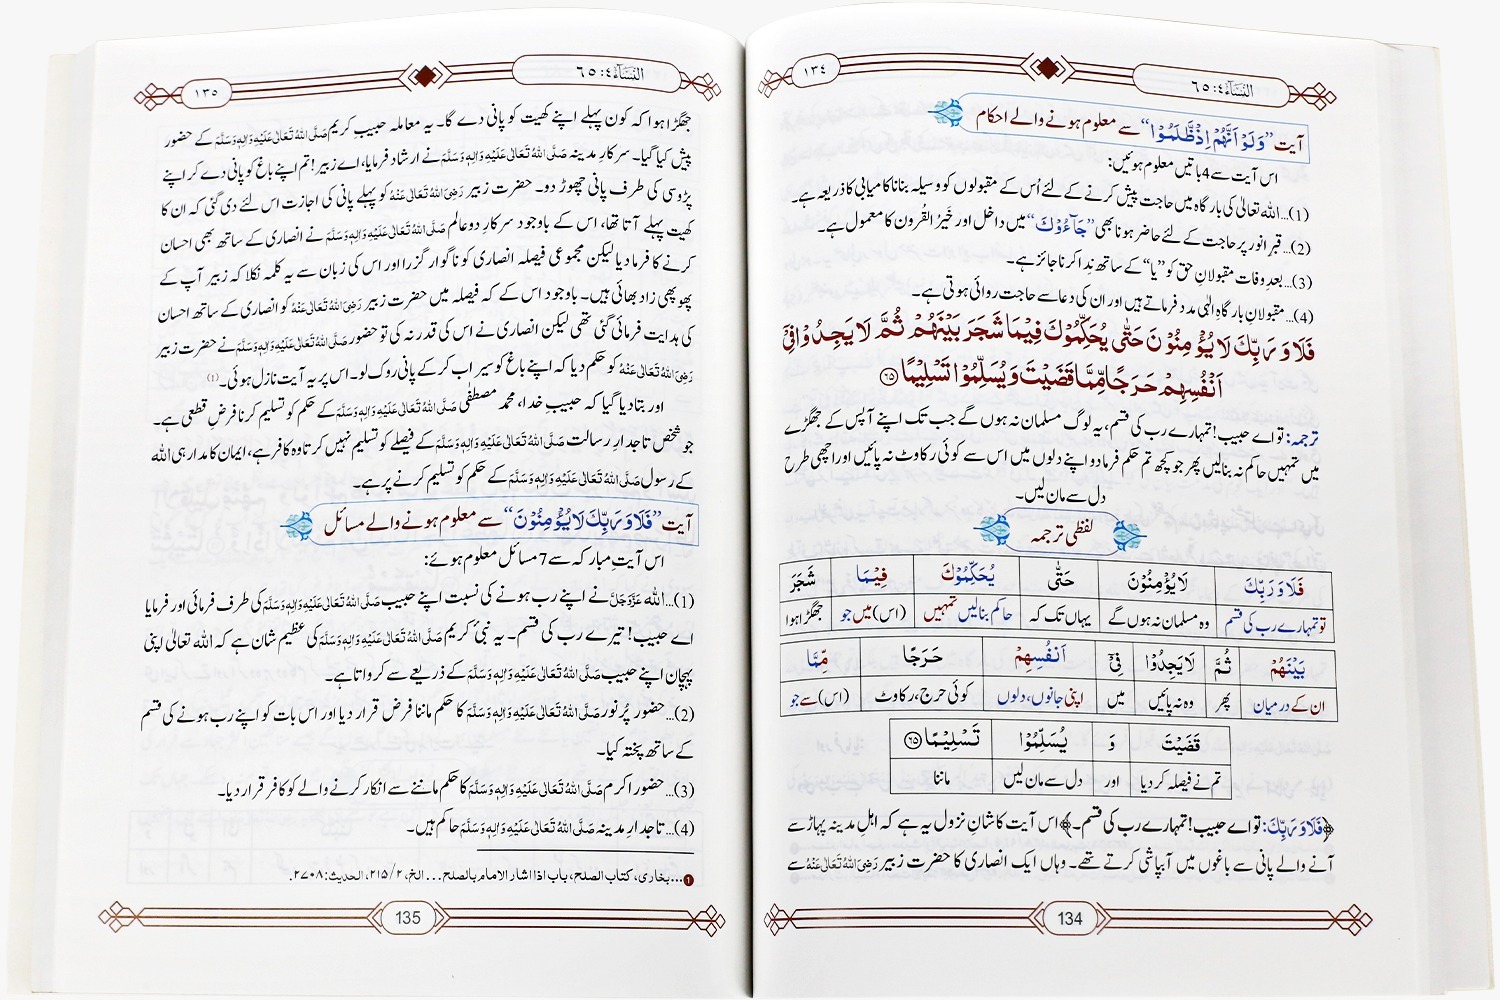 ١٣٤
النساء ٤: ٦٥
آیت ”وَلَوْ اَنَّهُمْ اِذْ ظَّلَمُوْۤا“ سے معلوم ہونے والے احکام
اس آیت سے 4 باتیں معلوم ہوئیں:
(1)...اللہ تعالیٰ کی بارگاہ میں حاجت پیش کرنے کے لئے اُس کے مقبولوں کو وسیلہ بنانا کامیابی کا ذریعہ ہے۔
(2)...قبرِ انور پر حاجت کے لئے حاضر ہونا بھی ”جَآءُوْكَ“ میں داخل اور خَیرُ القُرون کا معمول ہے۔
(3)...بعدِ وفات مقبولانِ حق کو ”یا“ کے ساتھ نِدا کرنا جائز ہے۔
(4)...مقبولانِ بارگاہِ الٰہی مدد فرماتے ہیں اور ان کی دعا سے حاجت روائی ہوتی ہے۔
فَلَا وَ رَبِّكَ لَا یُؤْمِنُوْنَ حَتّٰى یُحَكِّمُوْكَ فِیْمَا شَجَرَ بَیْنَهُمْ ثُمَّ لَا یَجِدُوْا فِیْۤ
اَنْفُسِهِمْ حَرَجًا مِّمَّا قَضَیْتَ وَ یُسَلِّمُوْا تَسْلِیْمًا ﴿٦٥﴾
ترجمہ: تو اے حبیب! تمہارے رب کی قسم، یہ لوگ مسلمان نہ ہوں گے جب تک اپنے آپس کے جھگڑے
میں تمہیں حاکم نہ بنالیں پھر جو کچھ تم حکم فرما دو اپنے دلوں میں اس سے کوئی رکاوٹ نہ پائیں اور اچھی طرح
دل سے مان لیں۔
لفظی ترجمہ
فَلَا وَ رَبِّكَ لَا یُؤْمِنُوْنَ حَتّٰى یُحَكِّمُوْكَ فِیْمَا شَجَرَ
تو تمہارے رب کی قسم وہ مسلمان نہ ہوں گے یہاں تک کہ حاکم بنالیں تمہیں (اس) میں جو جھگڑا ہوا
بَیْنَهُمْ ثُمَّ لَا یَجِدُوْا فِیْۤ اَنْفُسِهِمْ حَرَجًا مِّمَّا
ان کے درمیان پھر وہ نہ پائیں میں اپنی جانوں، دلوں کوئی حرج، رکاوٹ (اس) سے جو
قَضَیْتَ وَ یُسَلِّمُوْا تَسْلِیْمًا ﴿٦٥﴾
تم نے فیصلہ کر دیا اور دل سے مان لیں ماننا
﴿فَلَا وَ رَبِّكَ: تو اے حبیب! تمہارے رب کی قسم۔﴾ اس آیت کا شانِ نزول یہ ہے کہ اہلِ مدینہ پہاڑ سے
آنے والے پانی سے باغوں میں آبپاشی کرتے تھے۔ وہاں ایک انصاری کا حضرت زبیر رَضِیَ اللهُ تَعَالٰی عَنْهُ سے
134
١٣٥
النساء ٤: ٦٥
جھگڑا ہوا کہ کون پہلے اپنے کھیت کو پانی دے گا۔ یہ معاملہ حبیبِ کریم صَلَّی اللهُ تَعَالٰی عَلَیْهِ وَاٰلِهٖ وَسَلَّمَ کے حضور
پیش کیا گیا۔ سرکارِ مدینہ صَلَّی اللهُ تَعَالٰی عَلَیْهِ وَاٰلِهٖ وَسَلَّمَ نے ارشاد فرمایا، اے زبیر! تم اپنے باغ کو پانی دے کر اپنے
پڑوسی کی طرف پانی چھوڑ دو۔ حضرت زبیر رَضِیَ اللهُ تَعَالٰی عَنْهُ کو پہلے پانی کی اجازت اس لئے دی گئی کہ ان کا
کھیت پہلے آتا تھا، اس کے باوجود سرکارِ دو عالم صَلَّی اللهُ تَعَالٰی عَلَیْهِ وَاٰلِهٖ وَسَلَّمَ نے انصاری کے ساتھ بھی احسان
کرنے کا فرما دیا لیکن مجموعی فیصلہ انصاری کو ناگوار گزرا اور اس کی زبان سے یہ کلمہ نکلا کہ زبیر آپ کے
پھوپھی زاد بھائی ہیں۔ باوجود اس کے کہ فیصلہ میں حضرت زبیر رَضِیَ اللهُ تَعَالٰی عَنْهُ کو انصاری کے ساتھ احسان
کی ہدایت فرمائی گئی تھی لیکن انصاری نے اس کی قدر نہ کی تو حضور صَلَّی اللهُ تَعَالٰی عَلَیْهِ وَاٰلِهٖ وَسَلَّمَ نے حضرت زبیر
رَضِیَ اللهُ تَعَالٰی عَنْهُ کو حکم دیا کہ اپنے باغ کو سیراب کر کے پانی روک لو۔ اس پر یہ آیت نازل ہوئی۔(1)
اور بتا دیا گیا کہ حبیبِ خدا، محمد مصطفٰی صَلَّی اللهُ تَعَالٰی عَلَیْهِ وَاٰلِهٖ وَسَلَّمَ کے حکم کو تسلیم کرنا فرضِ قطعی ہے۔
جو شخص تاجدارِ رسالت صَلَّی اللهُ تَعَالٰی عَلَیْهِ وَاٰلِهٖ وَسَلَّمَ کے فیصلے کو تسلیم نہیں کرتا وہ کافر ہے، ایمان کا مدار ہی اللہ
کے رسول صَلَّی اللهُ تَعَالٰی عَلَیْهِ وَاٰلِهٖ وَسَلَّمَ کے حکم کو تسلیم کرنے پر ہے۔
آیت ”فَلَا وَ رَبِّكَ لَا یُؤْمِنُوْنَ“ سے معلوم ہونے والے مسائل
اس آیتِ مبارکہ سے 7 مسائل معلوم ہوئے:
(1)...اللہ عَزَّوَجَلَّ نے اپنے رب ہونے کی نسبت اپنے حبیب صَلَّی اللهُ تَعَالٰی عَلَیْهِ وَاٰلِهٖ وَسَلَّمَ کی طرف فرمائی اور فرمایا
اے حبیب! تیرے رب کی قسم۔ یہ نبیٔ کریم صَلَّی اللهُ تَعَالٰی عَلَیْهِ وَاٰلِهٖ وَسَلَّمَ کی عظیم شان ہے کہ اللہ تعالیٰ اپنی
پہچان اپنے حبیب صَلَّی اللهُ تَعَالٰی عَلَیْهِ وَاٰلِهٖ وَسَلَّمَ کے ذریعے سے کرواتا ہے۔
(2)...حضور پُر نور صَلَّی اللهُ تَعَالٰی عَلَیْهِ وَاٰلِهٖ وَسَلَّمَ کا حکم ماننا فرض قرار دیا اور اس بات کو اپنے رب ہونے کی قسم
کے ساتھ پختہ کیا۔
(3)...حضور اکرم صَلَّی اللهُ تَعَالٰی عَلَیْهِ وَاٰلِهٖ وَسَلَّمَ کا حکم ماننے سے انکار کرنے والے کو کافر قرار دیا۔
(4)...تاجدارِ مدینہ صَلَّی اللهُ تَعَالٰی عَلَیْهِ وَاٰلِهٖ وَسَلَّمَ حاکم ہیں۔
1...بخاری، کتاب الصلح، باب اذا اشار الامام بالصلح... الخ، ٢/٢١٥، الحدیث: ٢٧٠٨.
135